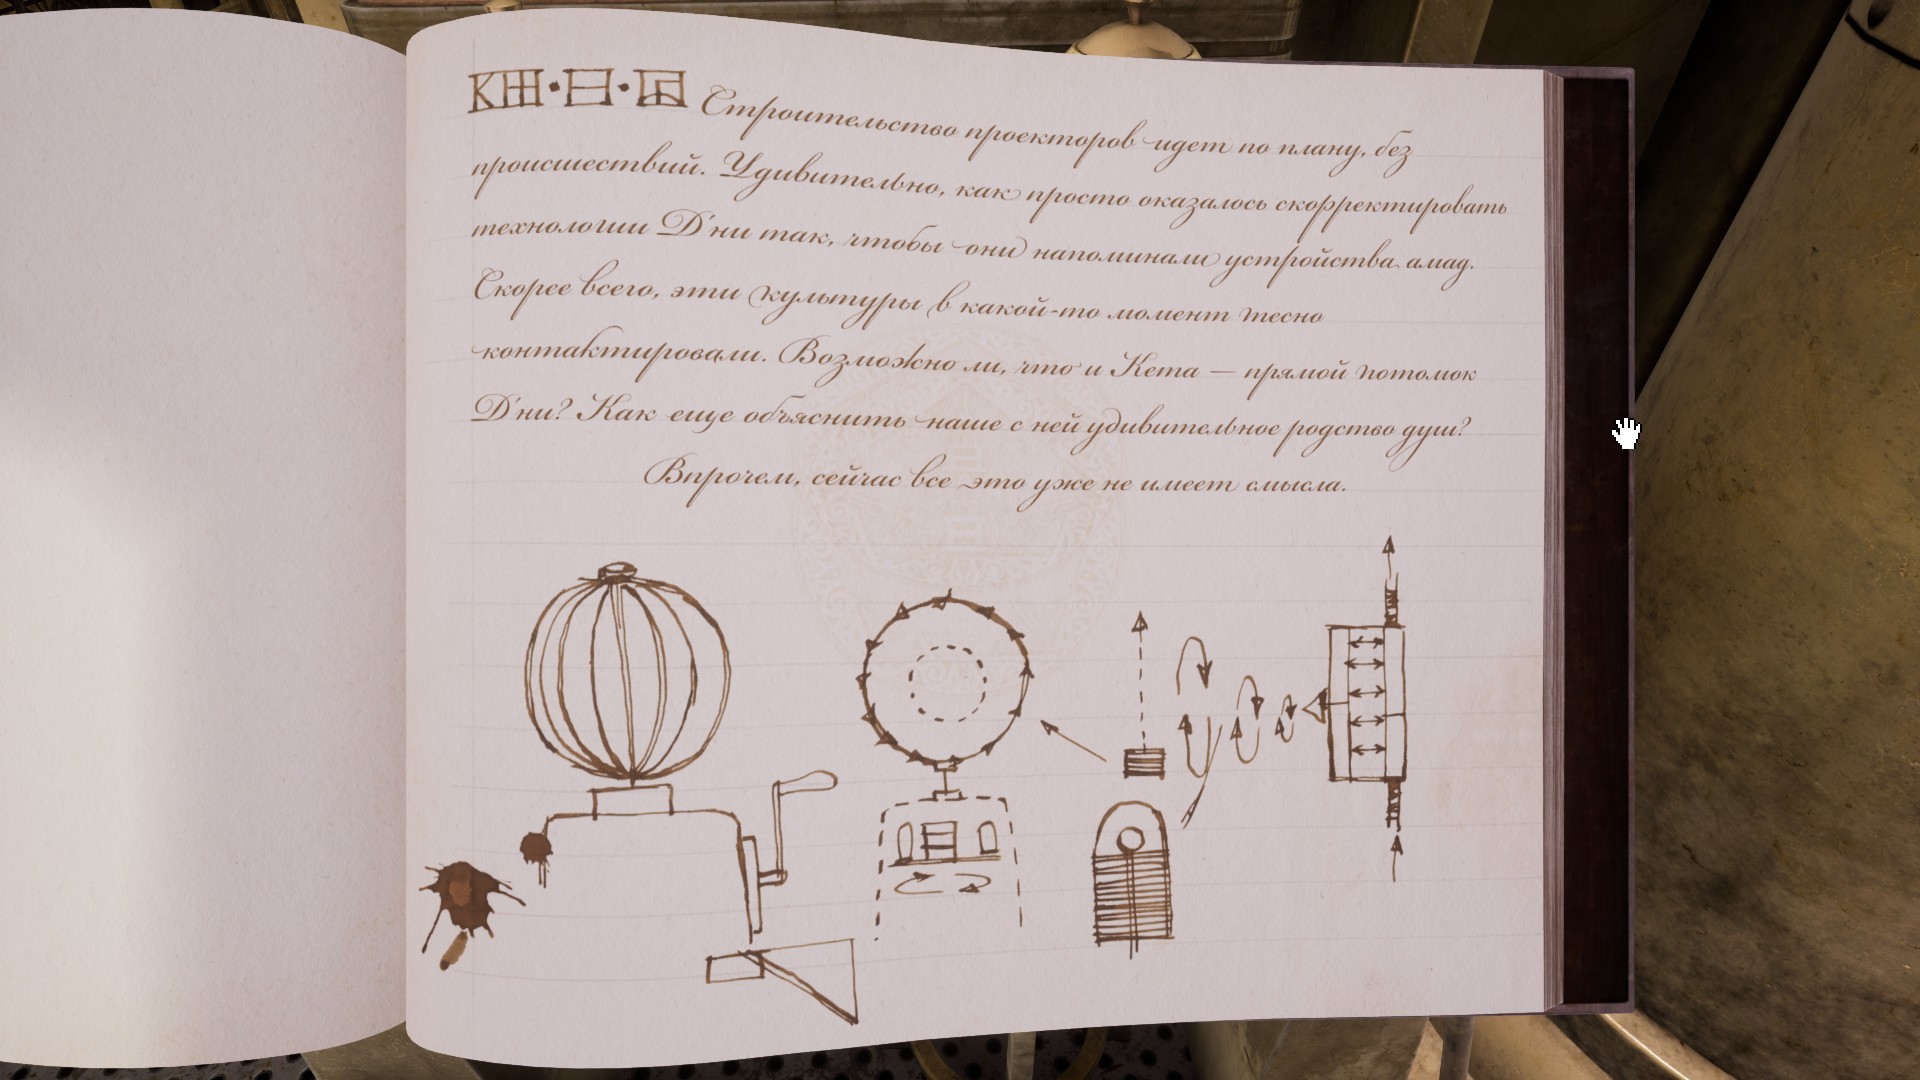 Строительство проекторов идет по плану, без
происшествий. Удивительно, как просто оказалось скорректировать
технологии Д'ни так, чтобы они напоминали устройства амад.
Скорее всего, эти культуры в какой-то момент тесно
контактировали. Возможно ли, что и Кета — прямой потомок
Д'ни? Как еще объяснить наше с ней удивительное родство душ?
Впрочем, сейчас все это уже не имеет смысла.